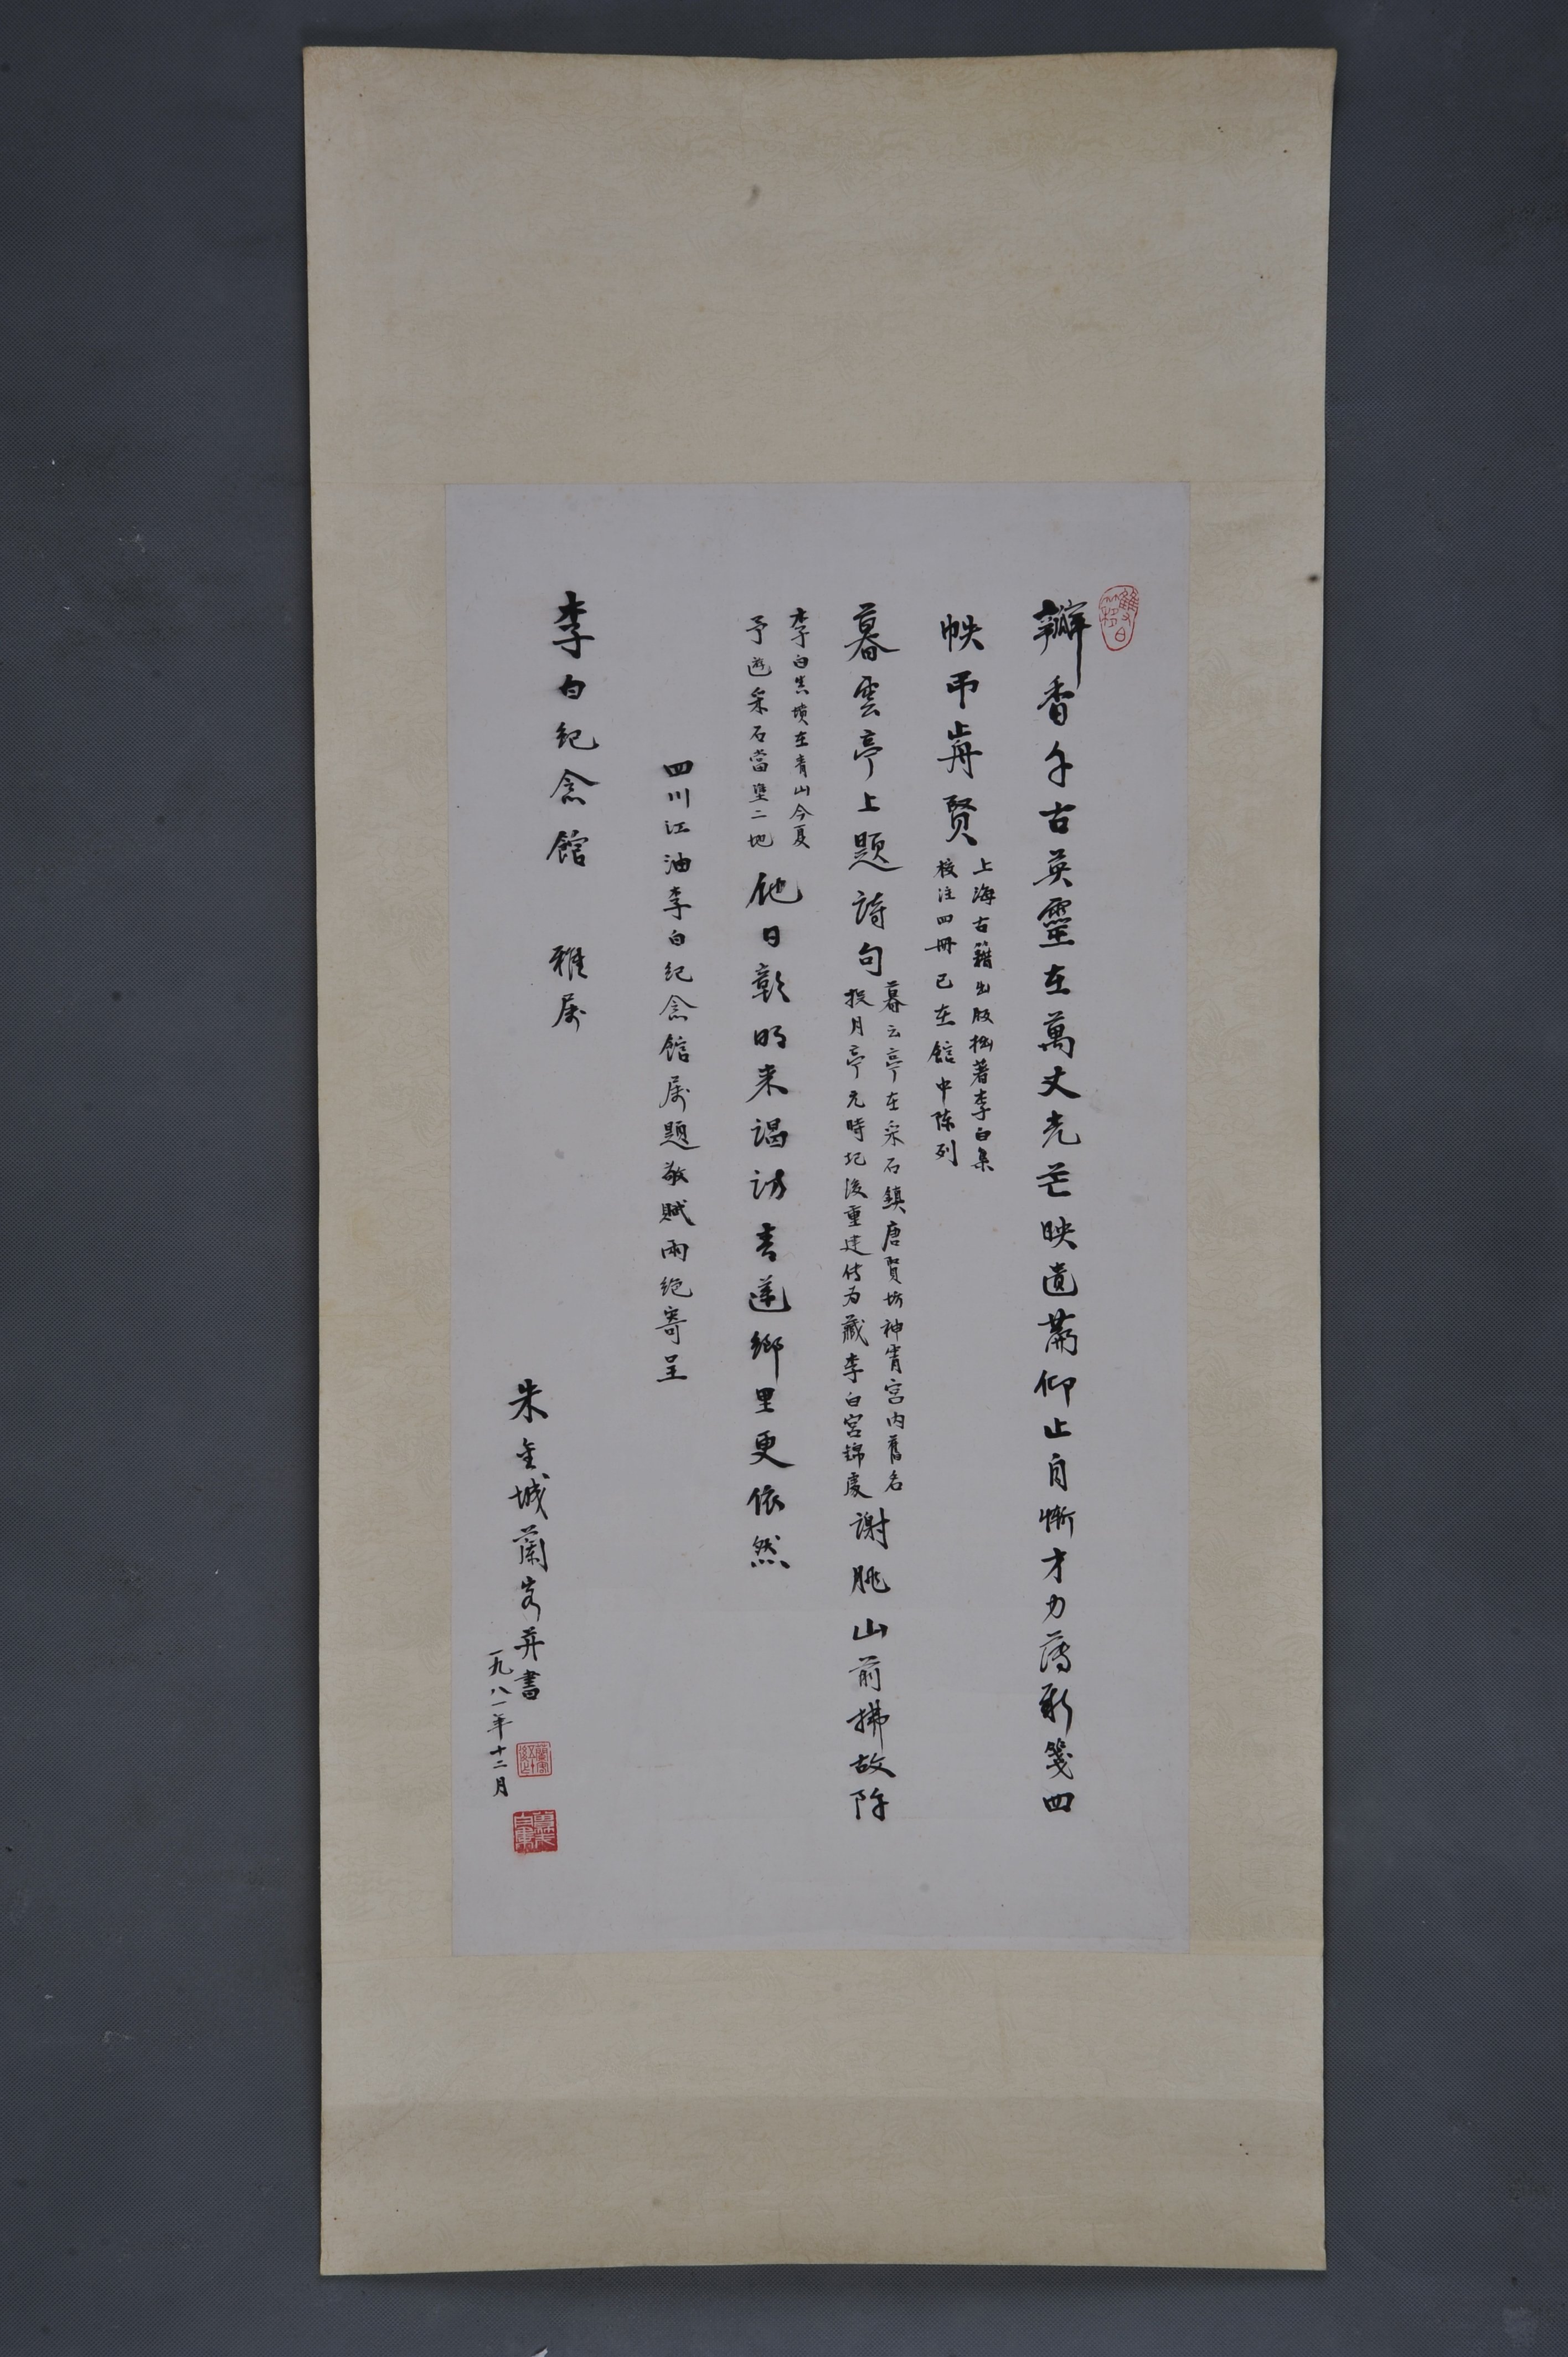 瓣香千古英靈在萬丈光芒映遺篇仰止自慚才力薄新箋四
帙弔歬賢
上海古籍出版拙著李白集
校注四冊已在館中陈列
暮雲亭上題詩句
暮云亭在采石鎮唐賢坊神霄宮内舊名
捉月亭元時圮後重建传为藏李白宮錦處
謝朓山前拂故阡
李白真墳在青山今夏
予遊采石當塗二地
他日彰明来謁訪青蓮鄉里更依然
四川江油李白紀念館属題敬賦兩絶寄呈
李白紀念館 雅属
朱金城蘭客并書
一九八一年十二月